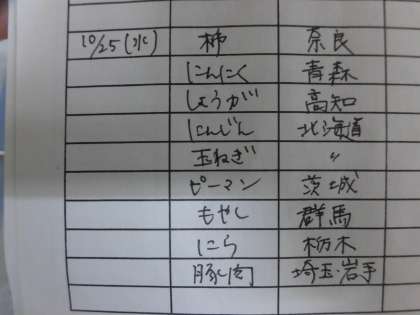 10/25(水) 柿 奈良
にんにく 青森
しょうが 高知
にんじん 北海道
玉ねぎ 〃
ピーマン 茨城
もやし 群馬
にら 栃木
豚肉 埼玉・岩手